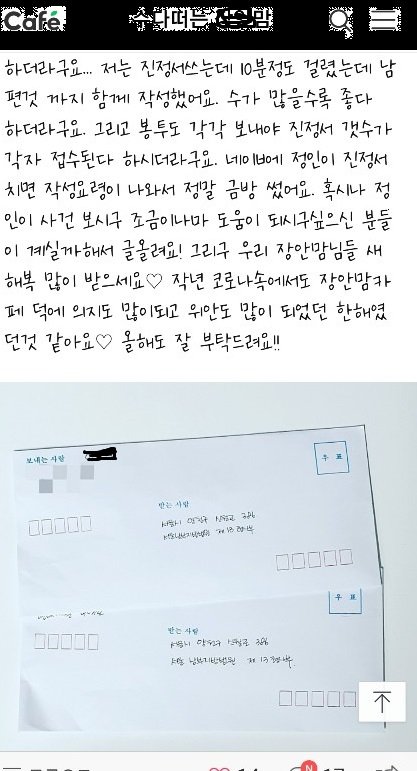 Café
수다떠는
맘
하더라구요... 저는 진정서쓰는데 10분정도 걸렸는데 남
편것 까지 함께 작성했어요. 수가 많을수록 좋다
하더라구요. 그리고 봉투도 각각 보내야 진정서 갯수가
각자 접수된다 하시더라구요. 네이버에 정인이 진정서
치면 작성요령이 나와서 정말 금방 썼어요. 혹시나 정
인이 사건 보시구 조금이나마 도움이 되시구싶으신 분들
이 계실까해서 글올려요! 그리구 우리 장안맘님들 새
해복 많이 받으세요♡ 작년 코로나속에서도 장안맘카
페 덕에 의지도 많이되고 위안도 많이 되었던 한해였
던것 같아요♡ 올해도 잘 부탁드려요!!
보내는 사람
우 표
받는 사람
서울시 양천구 신월로 386
서울남부지방법원 제 13 형사부
우 표
받는 사람
서울시 양천구 신월로 386
서울 남부지방법원 제 13 형사부
N
14
17